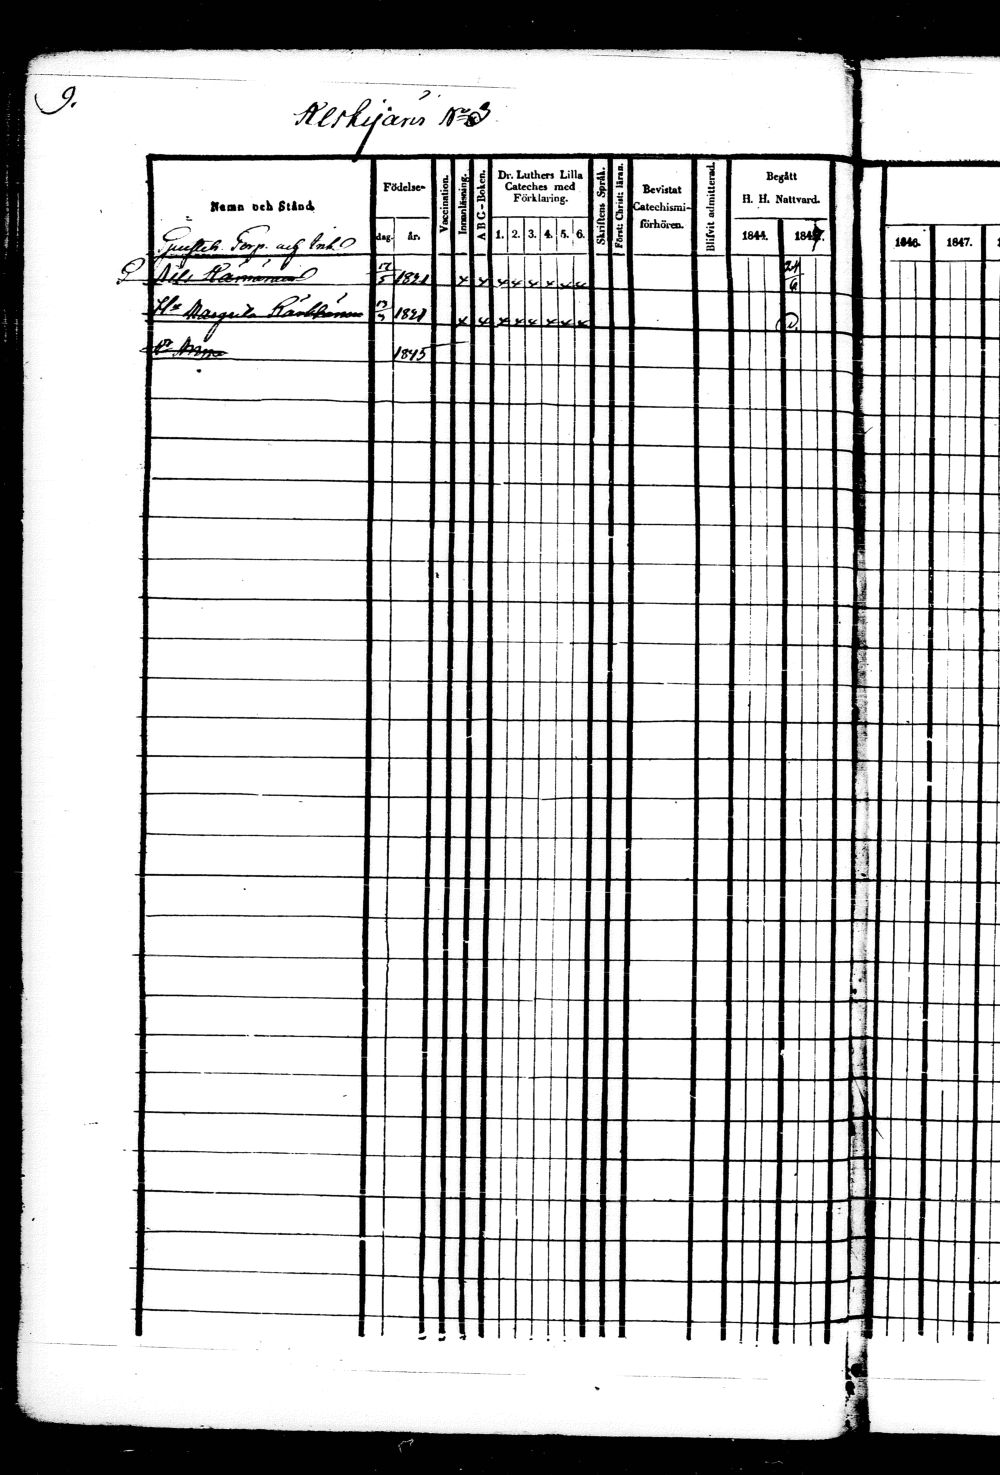 9.
Keskijärvi No 3
Namn och Stånd
Födelse-
dag.
år.
Vaccination.
Innanläsning.
A B C - Boken.
Dr. Luthers Lilla
Cateches med
Förklaring.
1. 2. 3. 4. 5. 6.
Skriftens Språk.
Först: Christ: läran.
Bevistat
Catechismi-
förhören.
Blifvit admitterad.
Begått
H. H. Nattvard.
1844.
1847.
1846.
1847.
Torp. Inh.
Nils 1821 x x x x x x x x 24/6
Hu Margeta 1821 x x x x x x x x
Dr Anna 1845